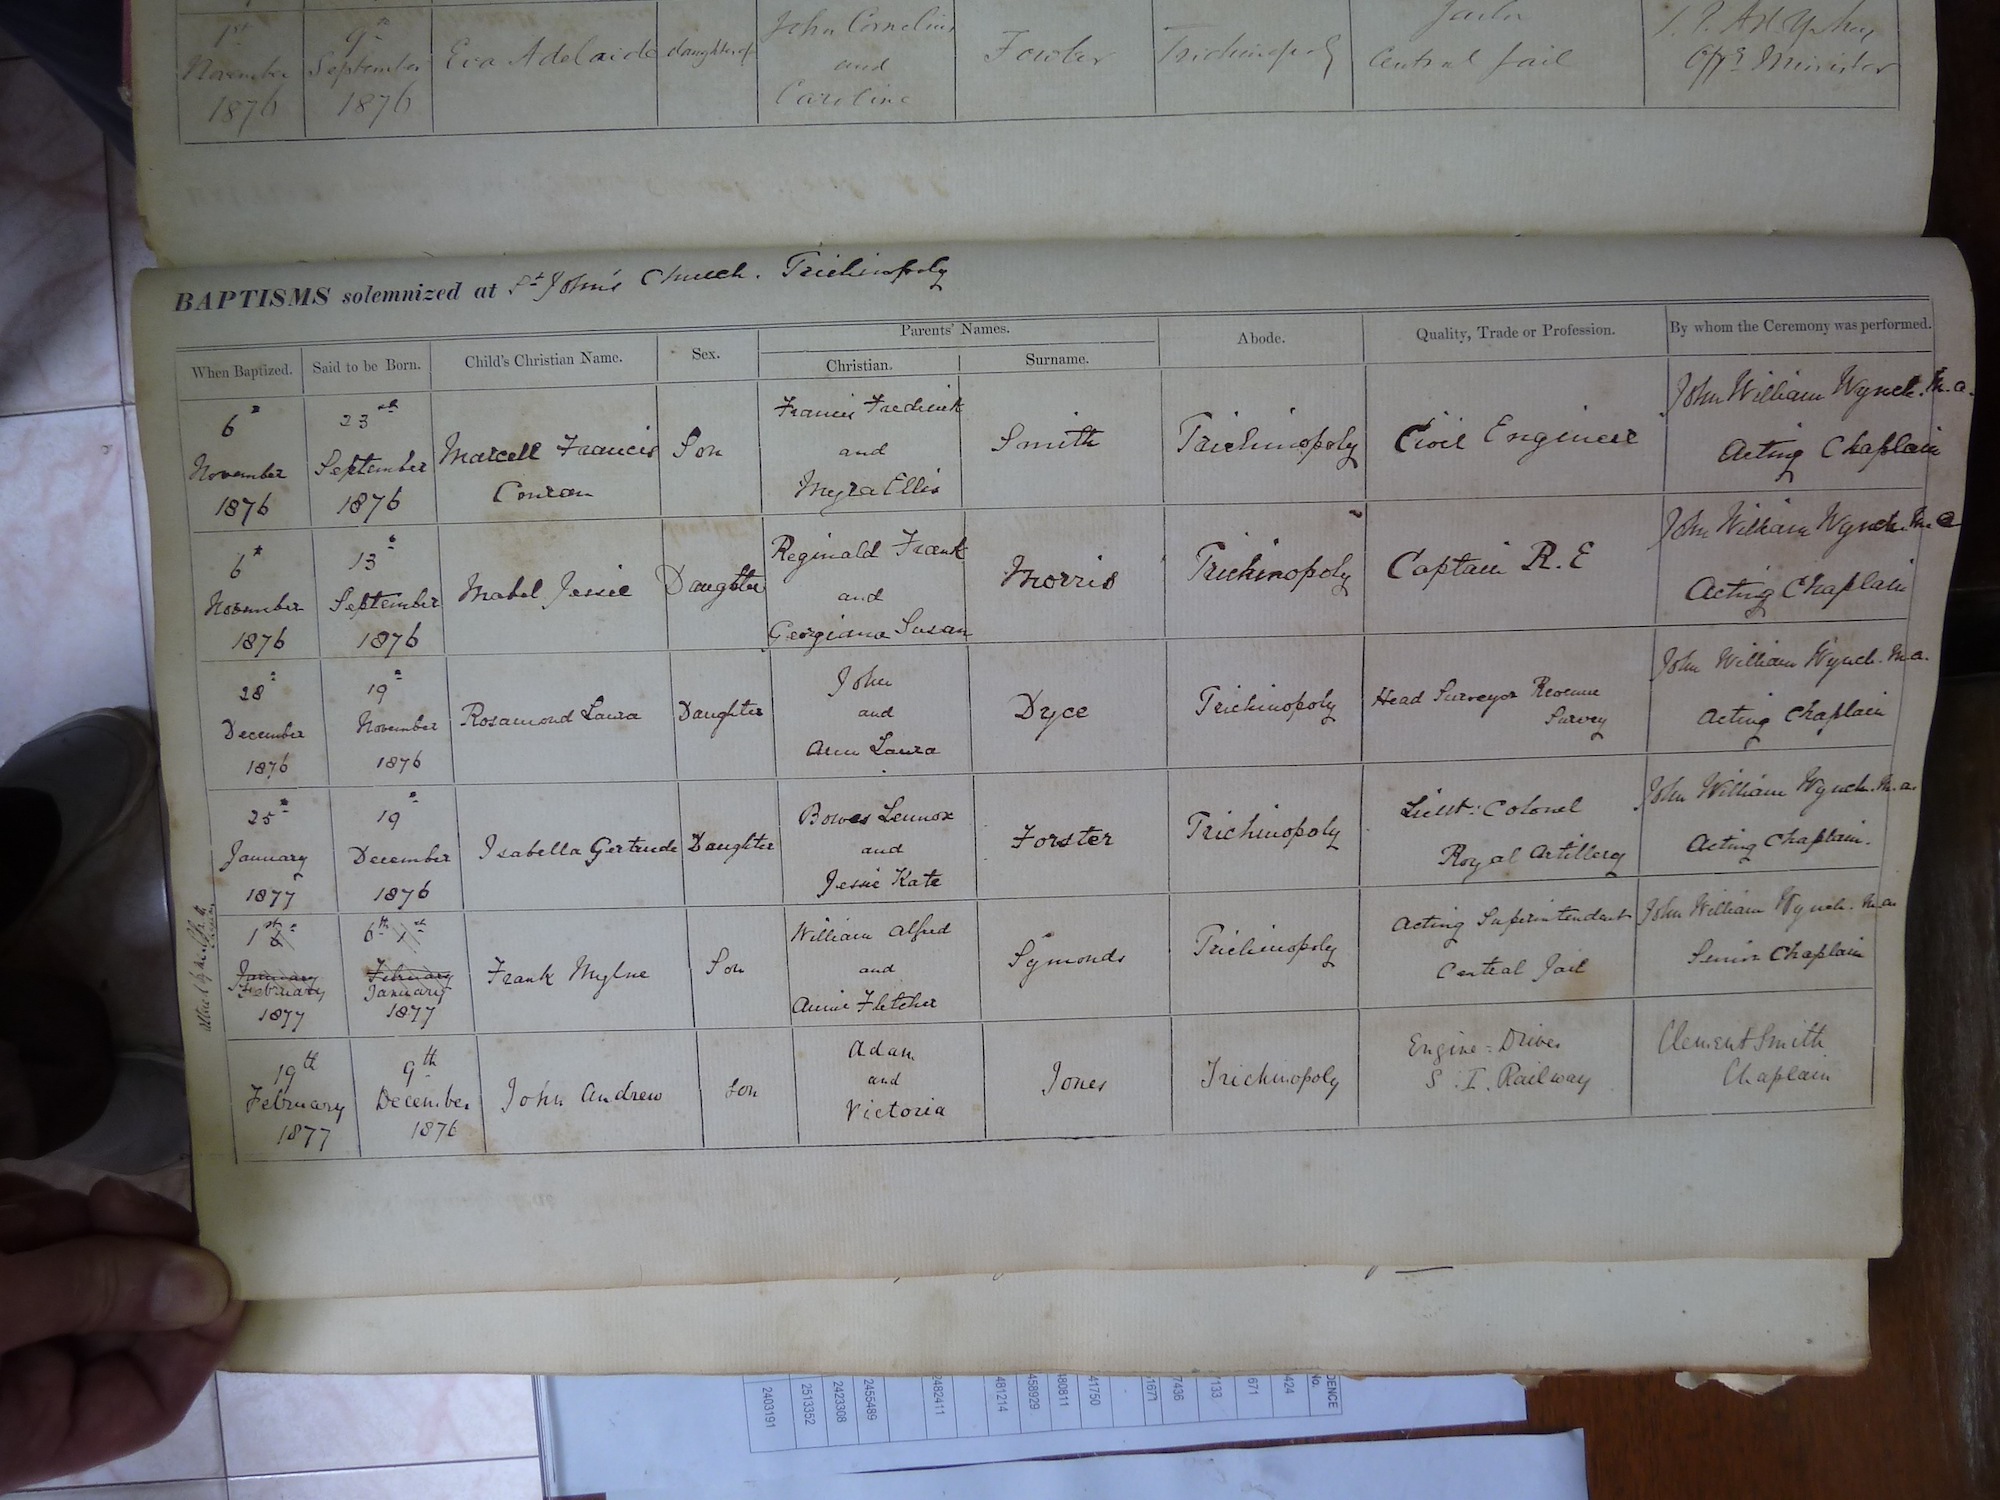 1st November 1876
9th September 1876
Eva Adelaide
daughter of
John Cornelius and Caroline
Fowler
Trichinopoly
Jailor Central Jail
Offg Minister
BAPTISMS solemnized at St John's Church. Trichinopoly
When Baptized. Said to be Born. Child's Christian Name. Sex. Parents' Names. Christian. Surname. Abode. Quality, Trade or Profession. By whom the Ceremony was performed.
6th November 1876
23rd September 1876
Marcell Francis Conran
Son
Francis Frederick and Myra Ellis
Smith
Trichinopoly
Civil Engineer
John William Wynch. M.A. Acting Chaplain
6th November 1876
13th September 1876
Mabel Jessie
Daughter
Reginald Frank and Georgiana Susan
Morris
Trichinopoly
Captain R.E
John William Wynch. M.A Acting Chaplain
28th December 1876
19th November 1876
Rosamond Laura
Daughter
John and Ann Laura
Dyce
Trichinopoly
Head Surveyor Revenue Survey
John William Wynch. M.A. Acting Chaplain
25th January 1877
19th December 1876
Isabella Gertrude
Daughter
Bowes Lennox and Jessie Kate
Forster
Trichinopoly
Lieut: Colonel Royal Artillery
John William Wynch. M.A. Acting Chaplain.
1st January February 1877
6th 1st February January 1877
Frank Mylne
Son
William Alfred and Annie Fletcher
Symonds
Trichinopoly
Acting Superintendent Central Jail
John William Wynch. M.A. Senior Chaplain
19th February 1877
9th December 1876
John Andrew
Son
Adam and Victoria
Jones
Trichinopoly
Engine-Driver S. I. Railway
Clement Smith Chaplain
2403191
2513352
2423308
2455489
2482411
481214
458929
480811
41750
51671
7436
133
671
424
DENCE No.